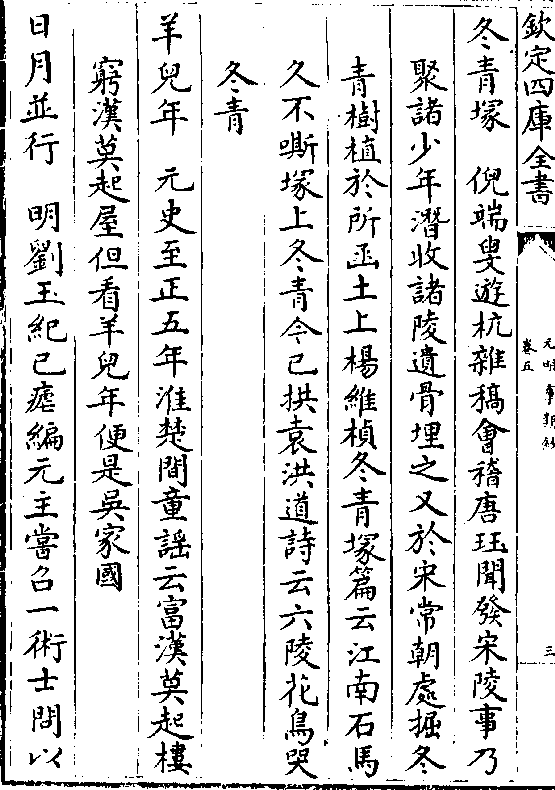 欽定四庫全書
卷五
三
冬青塚　倪端叟遊杭雜稿會稽唐珏聞發宋陵事乃
聚諸少年潛收諸陵遺骨埋之又於宋常朝處掘冬
青樹植於所函土上楊維楨冬青塚篇云江南石馬
久不嘶塚上冬青今已拱袁洪道詩云六陵花鳥哭
冬青
羊兒年　元史至正五年淮楚間童謠云富漢莫起樓
窮漢莫起屋但看羊兒年便是吳家國
日月並行　明劉玉紀已瘧編元主嘗召一術士問以